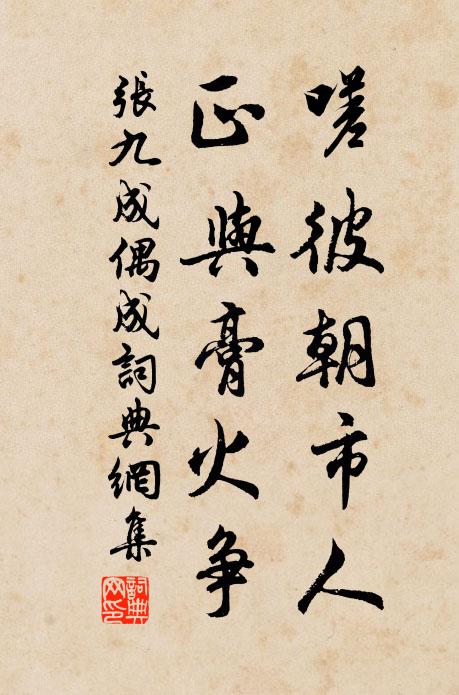 嗟彼朝市人
正與膏火爭
張九成偶成詞典網集
詞典
网印